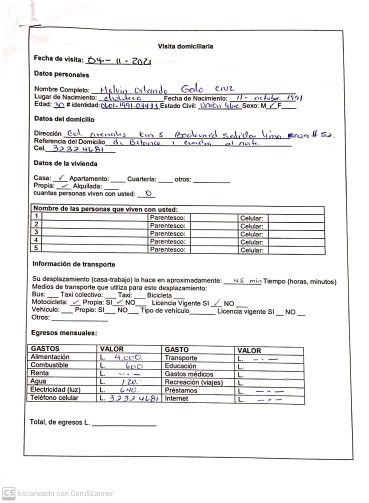 Visita domiciliaria
Fecha de visita: 04 - 11 - 2021
Datos personales
Nombre Completo: Melvin Orlando Galo Cruz
Lugar de Nacimiento: Fecha de Nacimiento: 11- octubre 1991
Edad: 30 # identidad: Estado Civil: Union libre Sexo: M ✓ F
Datos del domicilio
Dirección Col arenales km 5 Boulevard salida lima casa # 52.
Referencia del Domicilio de 1 cuadra al norte
Cel 3232 4681
Datos de la vivienda
Casa: ✓ Apartamento: Cuartería: otros:
Propia: ✓ Alquilada:
cuantas personas viven con usted: 0
Nombre de las personas que viven con usted:
1 Parentesco: Celular:
2 Parentesco: Celular:
3 Parentesco: Celular:
4 Parentesco: Celular:
5 Parentesco: Celular:
Información de transporte
Su desplazamiento (casa-trabajo) lo hace en aproximadamente: 45 min Tiempo (horas, minutos)
Medios de transporte que utiliza para este desplazamiento:
Bus: Taxi colectivo: Taxi: Bicicleta
Motocicleta: ✓ Propia: SI ✓ NO Licencia Vigente SI ✓ NO
Vehículo: Propio: SI NO Tipo de vehículo Licencia vigente SI NO
Otros:
Egresos mensuales:
GASTOS VALOR GASTO VALOR
Alimentación L. 4,000. Transporte L. - . -
Combustible L. 600 Educación L.
Renta L. - . - Gastos médicos L.
Agua L. 120. Recreación (viajes) L.
Electricidad (luz) L. 640. Préstamos L. - . -
Teléfono celular L. 3232 4681 Internet L. - . -
Total, de egresos L.
CS Escaneado con CamScanner